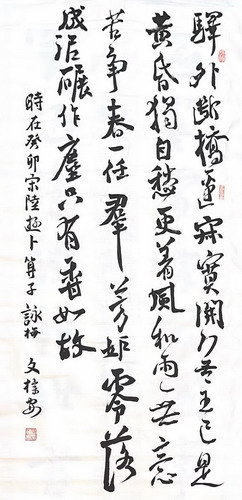 驛外斷橋邊寂寞開無主已是
黃昏獨自愁更着風和雨無意
苦爭春一任群芳妒零落
成泥碾作塵只有香如故
時在癸卯宋陸游卜算子詠梅